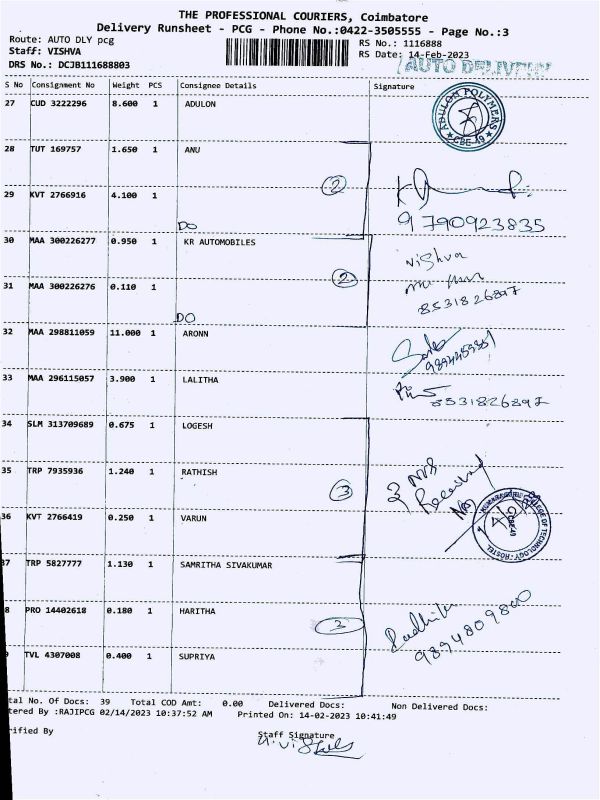 THE PROFESSIONAL COURIERS, Coimbatore
Delivery Runsheet - PCG - Phone No.:0422-3505555 - Page No.:3
Route: AUTO DLY pcg
Staff: VISHVA
DRS No.: DCJB111688803
RS No.: 1116888
RS Date: 14-Feb-2023
AUTO DELIVERY
S No Consignment No Weight PCS Consignee Details Signature
27 CUD 3222296 8.600 1 ADULON
ADULON POLYMERS
CBE-49
28 TUT 169757 1.650 1 ANU
2
29 KVT 2766916 4.100 1
DO
9790923835
30 MAA 300226277 0.950 1 KR AUTOMOBILES
Vishva
2
31 MAA 300226276 0.110 1
DO
8531826897
32 MAA 298811059 11.000 1 ARONN
33 MAA 296115057 3.900 1 LALITHA
8531826897
34 SLM 313709689 0.675 1 LOGESH
35 TRP 7935936 1.240 1 RATHISH
3
3 NOS
Received
36 KVT 2766419 0.250 1 VARUN
COLLEGE OF TECHNOLOGY HOSTEL
CBE49
37 TRP 5827777 1.130 1 SAMRITHA SIVAKUMAR
8 PRO 14402618 0.180 1 HARITHA
3
9894809800
TVL 4307008 0.400 1 SUPRIYA
tal No. Of Docs: 39 Total COD Amt: 0.00 Delivered Docs: Non Delivered Docs:
tered By :RAJIPCG 02/14/2023 10:37:52 AM Printed On: 14-02-2023 10:41:49
rified By
Staff Signature